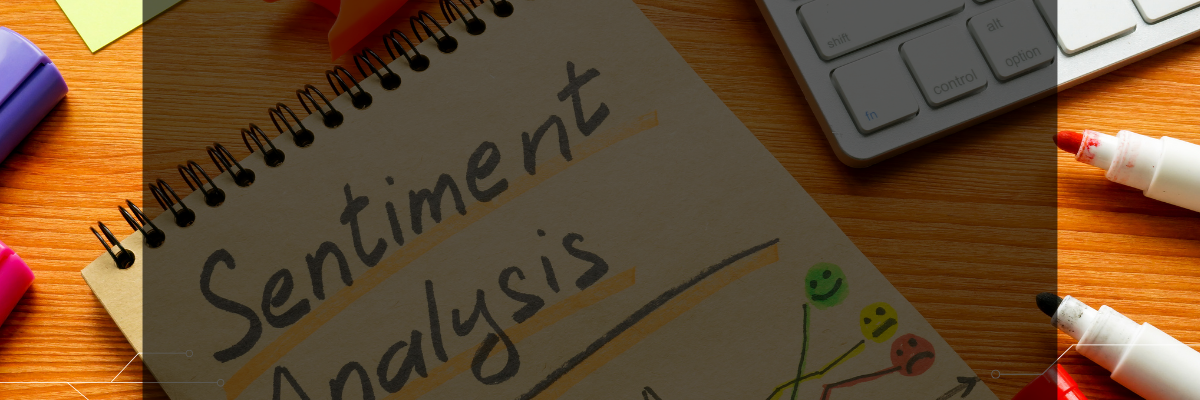 Sentiment
Analysis
shift
fn
control
alt
option